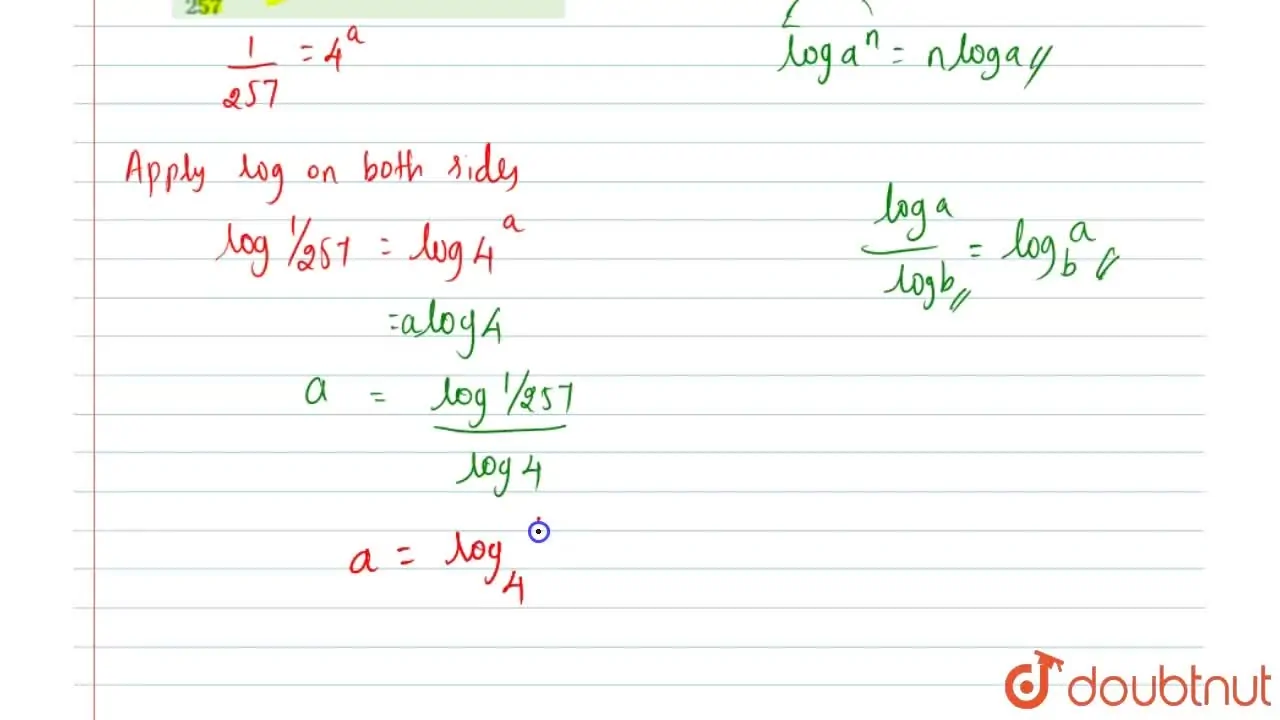 257
1/257 = 4^a
log a^n = n log a //
Apply log on both sides
log 1/257 = log 4^a
log a / log b // = log_b a //
= a log 4
a = log 1/257 / log 4
a = log_4
doubtnut